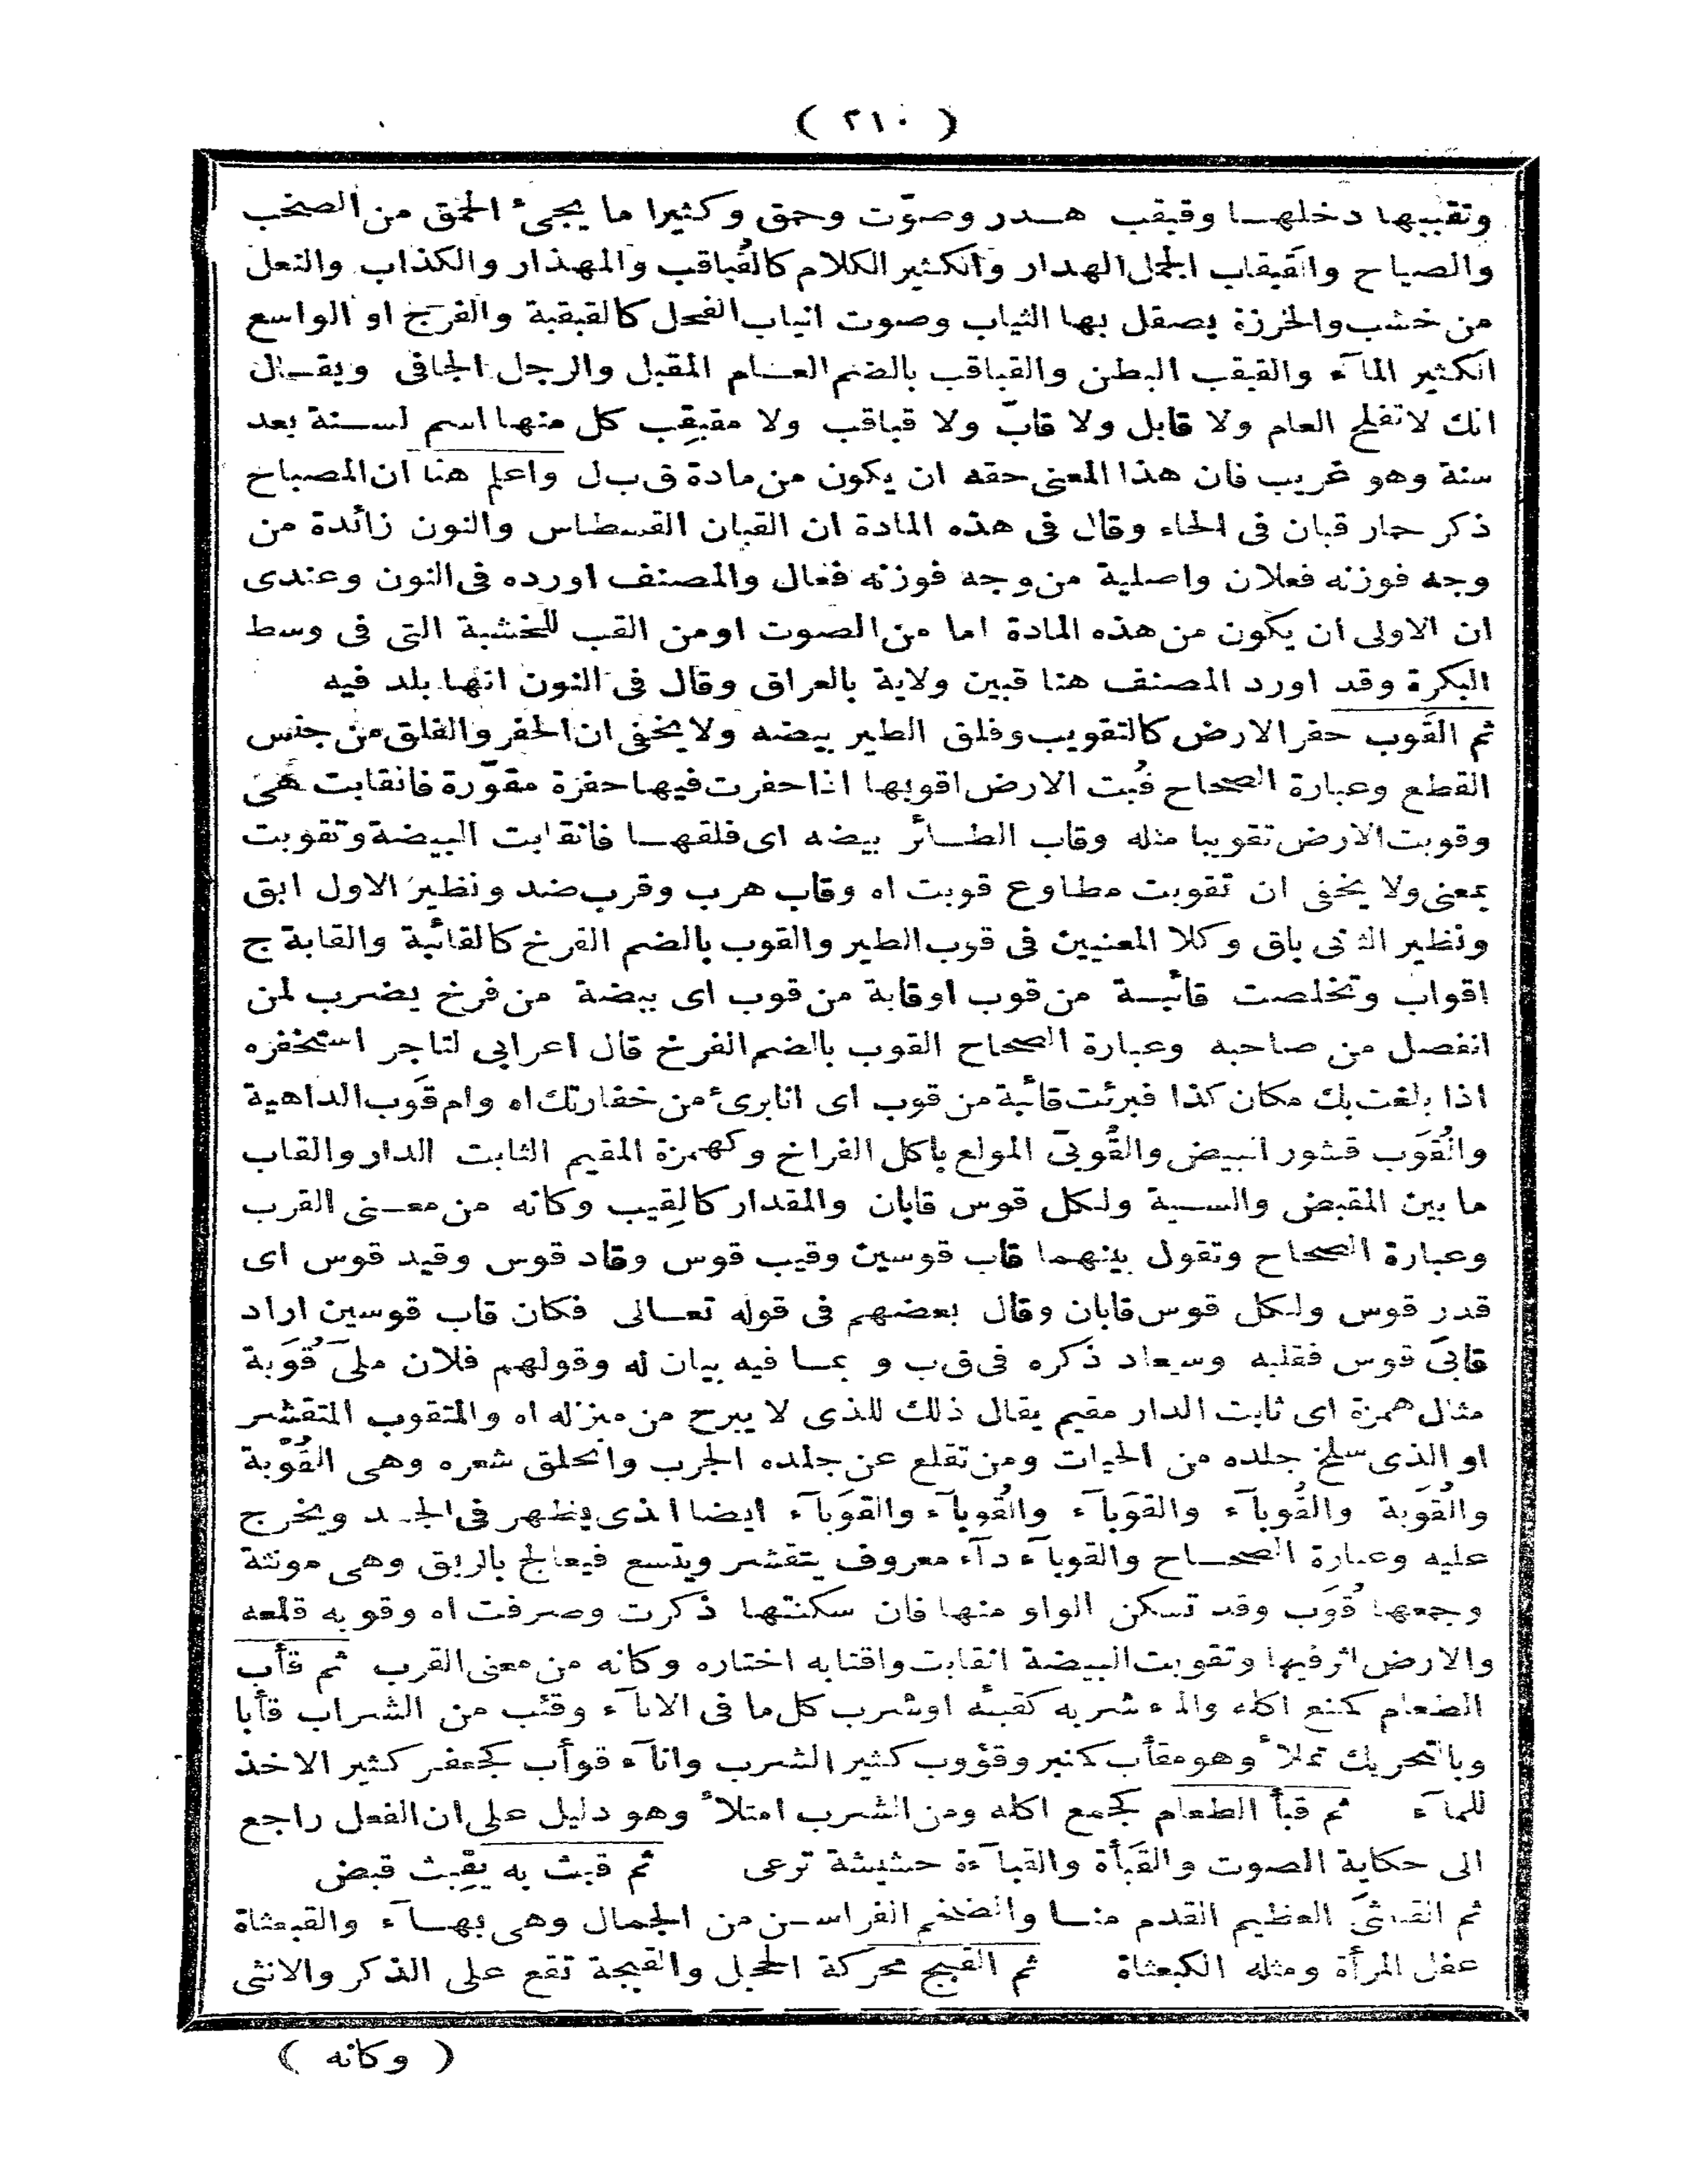 ( ٢١٠ )
وتقببها دخلهـا وقبقب هـدر وصوّت وحمق وكثيرا ما يجىء الحمق من الصخب
والصياح والقبقاب الجمل الهدار والكثير الكلام كالقُباقب والمهذار والكذاب والنعل
من خشب والخرزة يصقل بها الثياب وصوت انياب الفحل كالقبقبة والفرج او الواسع
الكثير المآء والقبقب البطن والقباقب بالضم العـام المقبل والرجل الجافى ويقـال
انك لا تفلح العام ولا قابل ولا قابّ ولا قباقب ولا مقبقِب كل منها اسم لسـنة بعد
سنة وهو غريب فان هذا المعنى حقه ان يكون من مادة ق ب ل واعلم هنا ان المصباح
ذكر حمار قبان فى الحاء وقال فى هذه المادة ان القبان القسطاس والنون زائدة من
وجه فوزنه فعلان واصلية من وجه فوزنه فعال والمصنف اورده فى النون وعندى
ان الاولى ان يكون من هذه المادة اما من الصوت او من القب للخشبة التى فى وسط
البكرة وقد اورد المصنف هنا قبين ولاية بالعراق وقال فى النون انها بلد فيه
ثم القَوب حفر الارض كالتقويب وفلق الطير بيضه ولا يخفى ان الحفر والفلق من جنس
القطع وعبارة الصحاح قُبت الارض اقوبها اذا حفرت فيها حفرة مقوّرة فانقابت هى
وقوبت الارض تقويبا مثله وقاب الطـائر بيضه اى فلقهـا فانقابت البيضة وتقوبت
بمعنى ولا يخفى ان تقوبت مطاوع قوبت اه وقاب هرب وقرب ضد ونظير الاول ابق
ونظير الثانى باق وكلا المعنيين فى قوب الطير والقوب بالضم الفرخ كالقائبة والقابة ج
اقواب وتخلصت قائبـة من قوب او قابة من قوب اى بيضة من فرخ يضرب لمن
انفصل من صاحبه وعبارة الصحاح القوب بالضم الفرخ قال اعرابى لتاجر استخفره
اذا بلغت بك مكان كذا فبرئت قائبة من قوب اى انا برئ من خفارتك اه وام قَوب الداهية
والقُوَب قشور البيض والقُوبىّ المولع باكل الفراخ وكهمزة المقيم الثابت الدار والقاب
ما بين المقبض والسـية ولكل قوس قابان والمقدار كالقِيب وكانه من معـنى القرب
وعبارة الصحاح وتقول بينهما قاب قوسين وقيب قوس وقاد قوس وقيد قوس اى
قدر قوس ولكل قوس قابان وقال بعضهم فى قوله تعـالى فكان قاب قوسين اراد
قابَىْ قوس فقلبه وسيعاد ذكره فى ق ب و بمـا فيه بيان له وقولهم فلان ملىّ قُوَبة
مثال همزة اى ثابت الدار مقيم يقال ذلك للذى لا يبرح من منزله اه والمتقوب المتقشر
او الذى سلخ جلده من الحيات ومن تقلع عن جلده الجرب وانحلق شعره وهى القُوْبة
والقُوَبة والقُوبآء والقوَبآء والقُوبآء والقوَبآء ايضا الذى يظهر فى الجـد ويخرج
عليه وعبارة الصحـاح والقوبآء دآء معروف يتقشر ويتسع فيعالج بالريق وهى مونثة
وجمعها قُوَب وقد تسكن الواو منها فان سكنتها ذكرت وصرفت اه وقوبه قلعه
والارض اثر فيها وتقوبت البيضة انقابت واقتابه اختاره وكانه من معنى القرب ثم قأب
الطعام كمنع اكله والماء شربه كقبئه او شرب كل ما فى الانآء وقئب من الشراب قأبا
وبالتحريك تملأ وهو مقأب كمنبر وقؤوب كثير الشرب وانآء قوأب كجعفر كثير الاخذ
للمآء ثم قبأ الطعام كجمع اكله ومن الشرب امتلأ وهو دليل على ان الفعل راجع
الى حكاية الصوت والقَبأة والقبآءة حشيشة ترعى ثم قبث به يقبِث قبض
ثم القبعثىَ العظيم القدم منـا والضخم الفراسـن من الجمال وهى بهـآء والقبعثاة
عفل المرأة ومثله الكبعثاة ثم القبج محركة الحجل والقبجة تقع على الذكر والانثى
( وكانه )